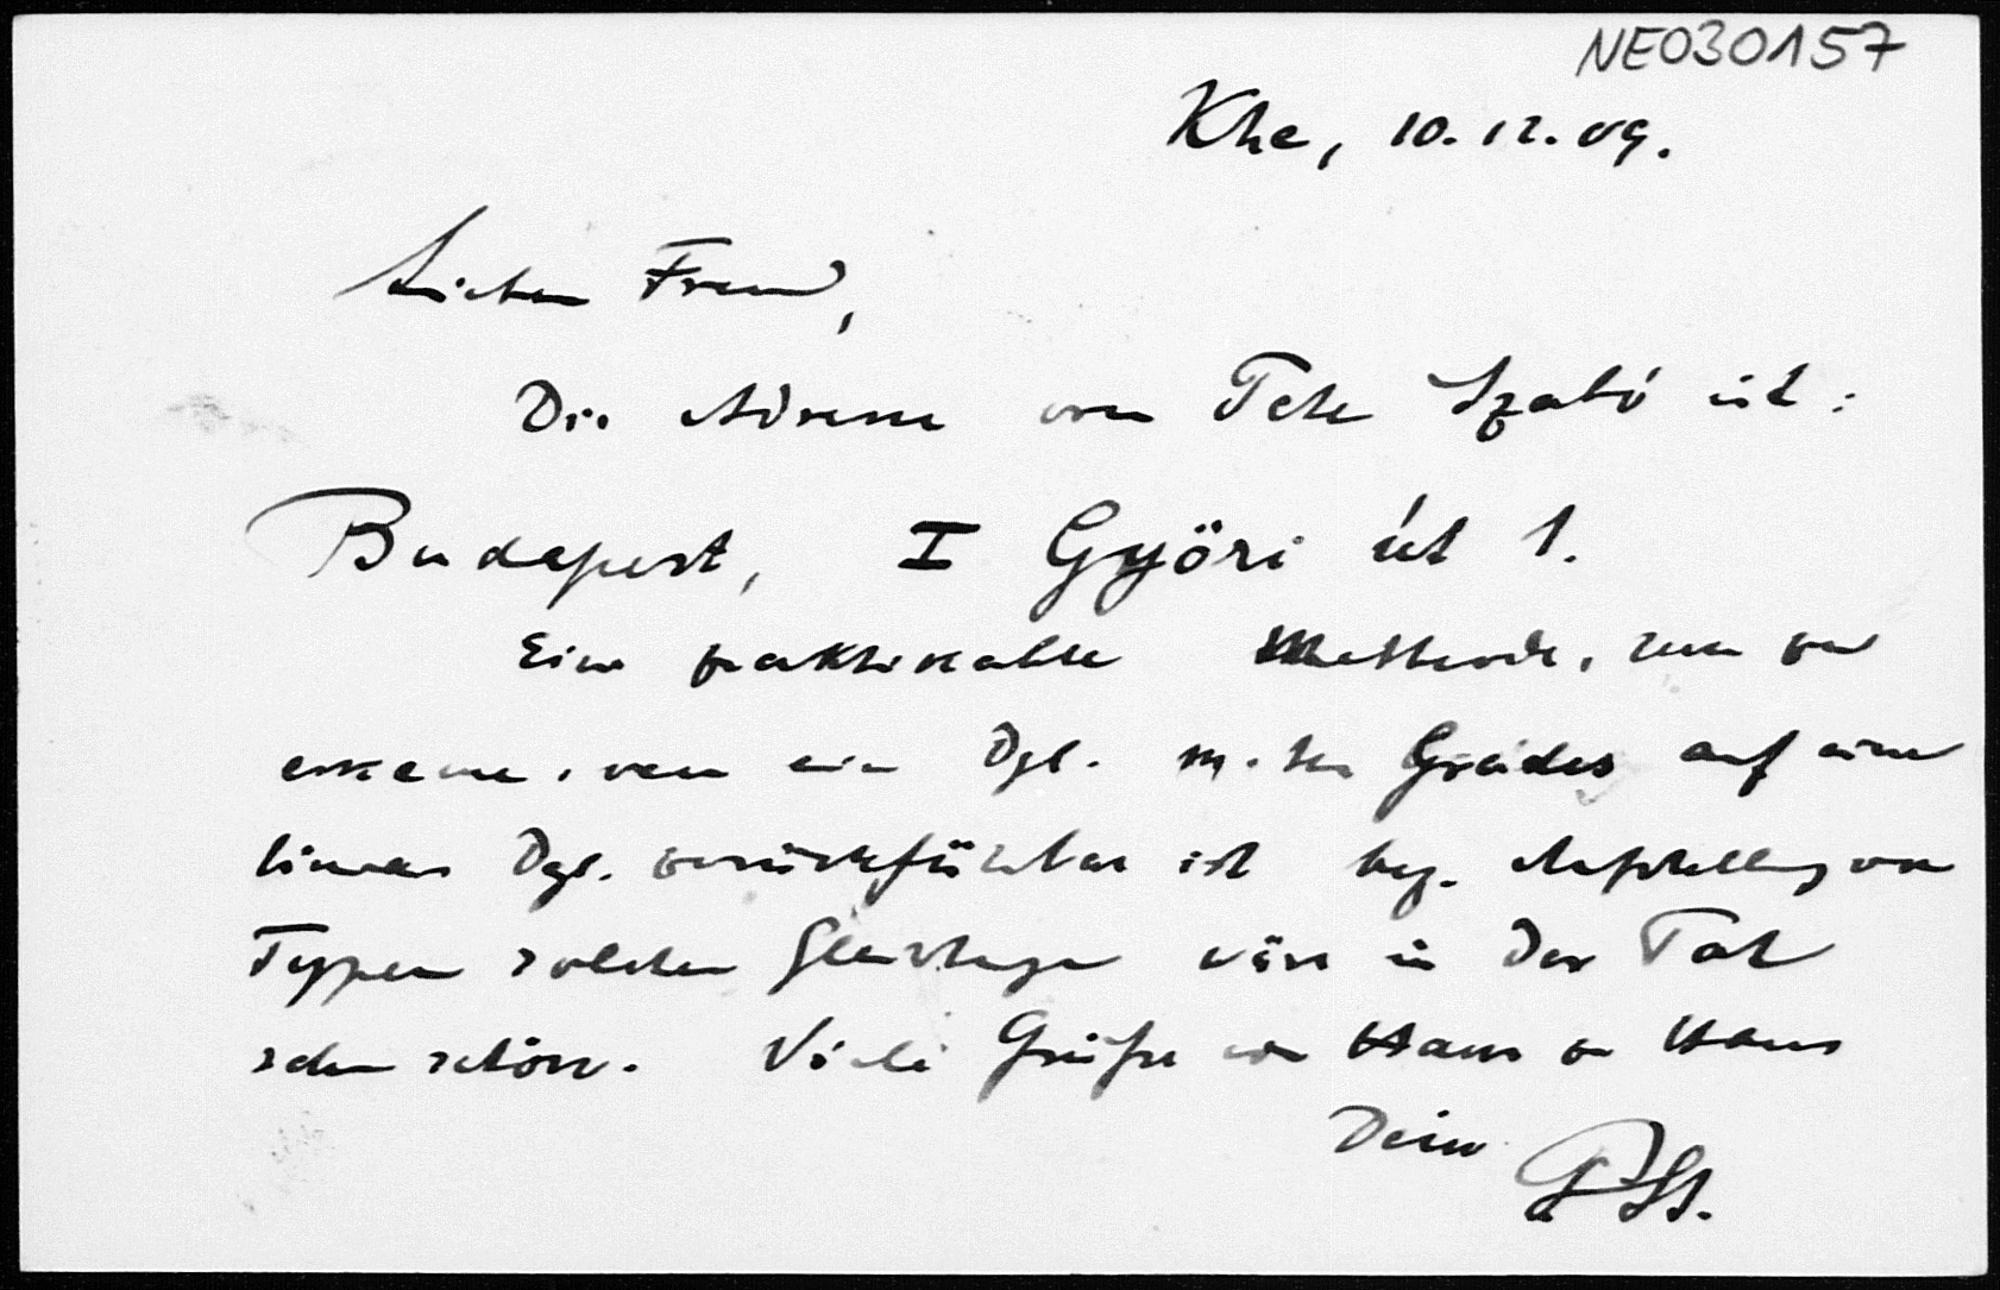 NEO30157
Khe, 10.12.09.
Lieber Freund,
Die Adresse von Peter Szabó ist:
Budapest, I Györi út 1.
Eine praktikable Methode, um zu
erkennen, wenn eine Dgl. m-ten Grades auf eine
lineare Dgl. zurückführbar ist bez. Aufstellung von
Typen solcher Gleichungen wäre in der Tat
sehr schön. Viele Grüße von Haus zu Haus
Dein PSt.